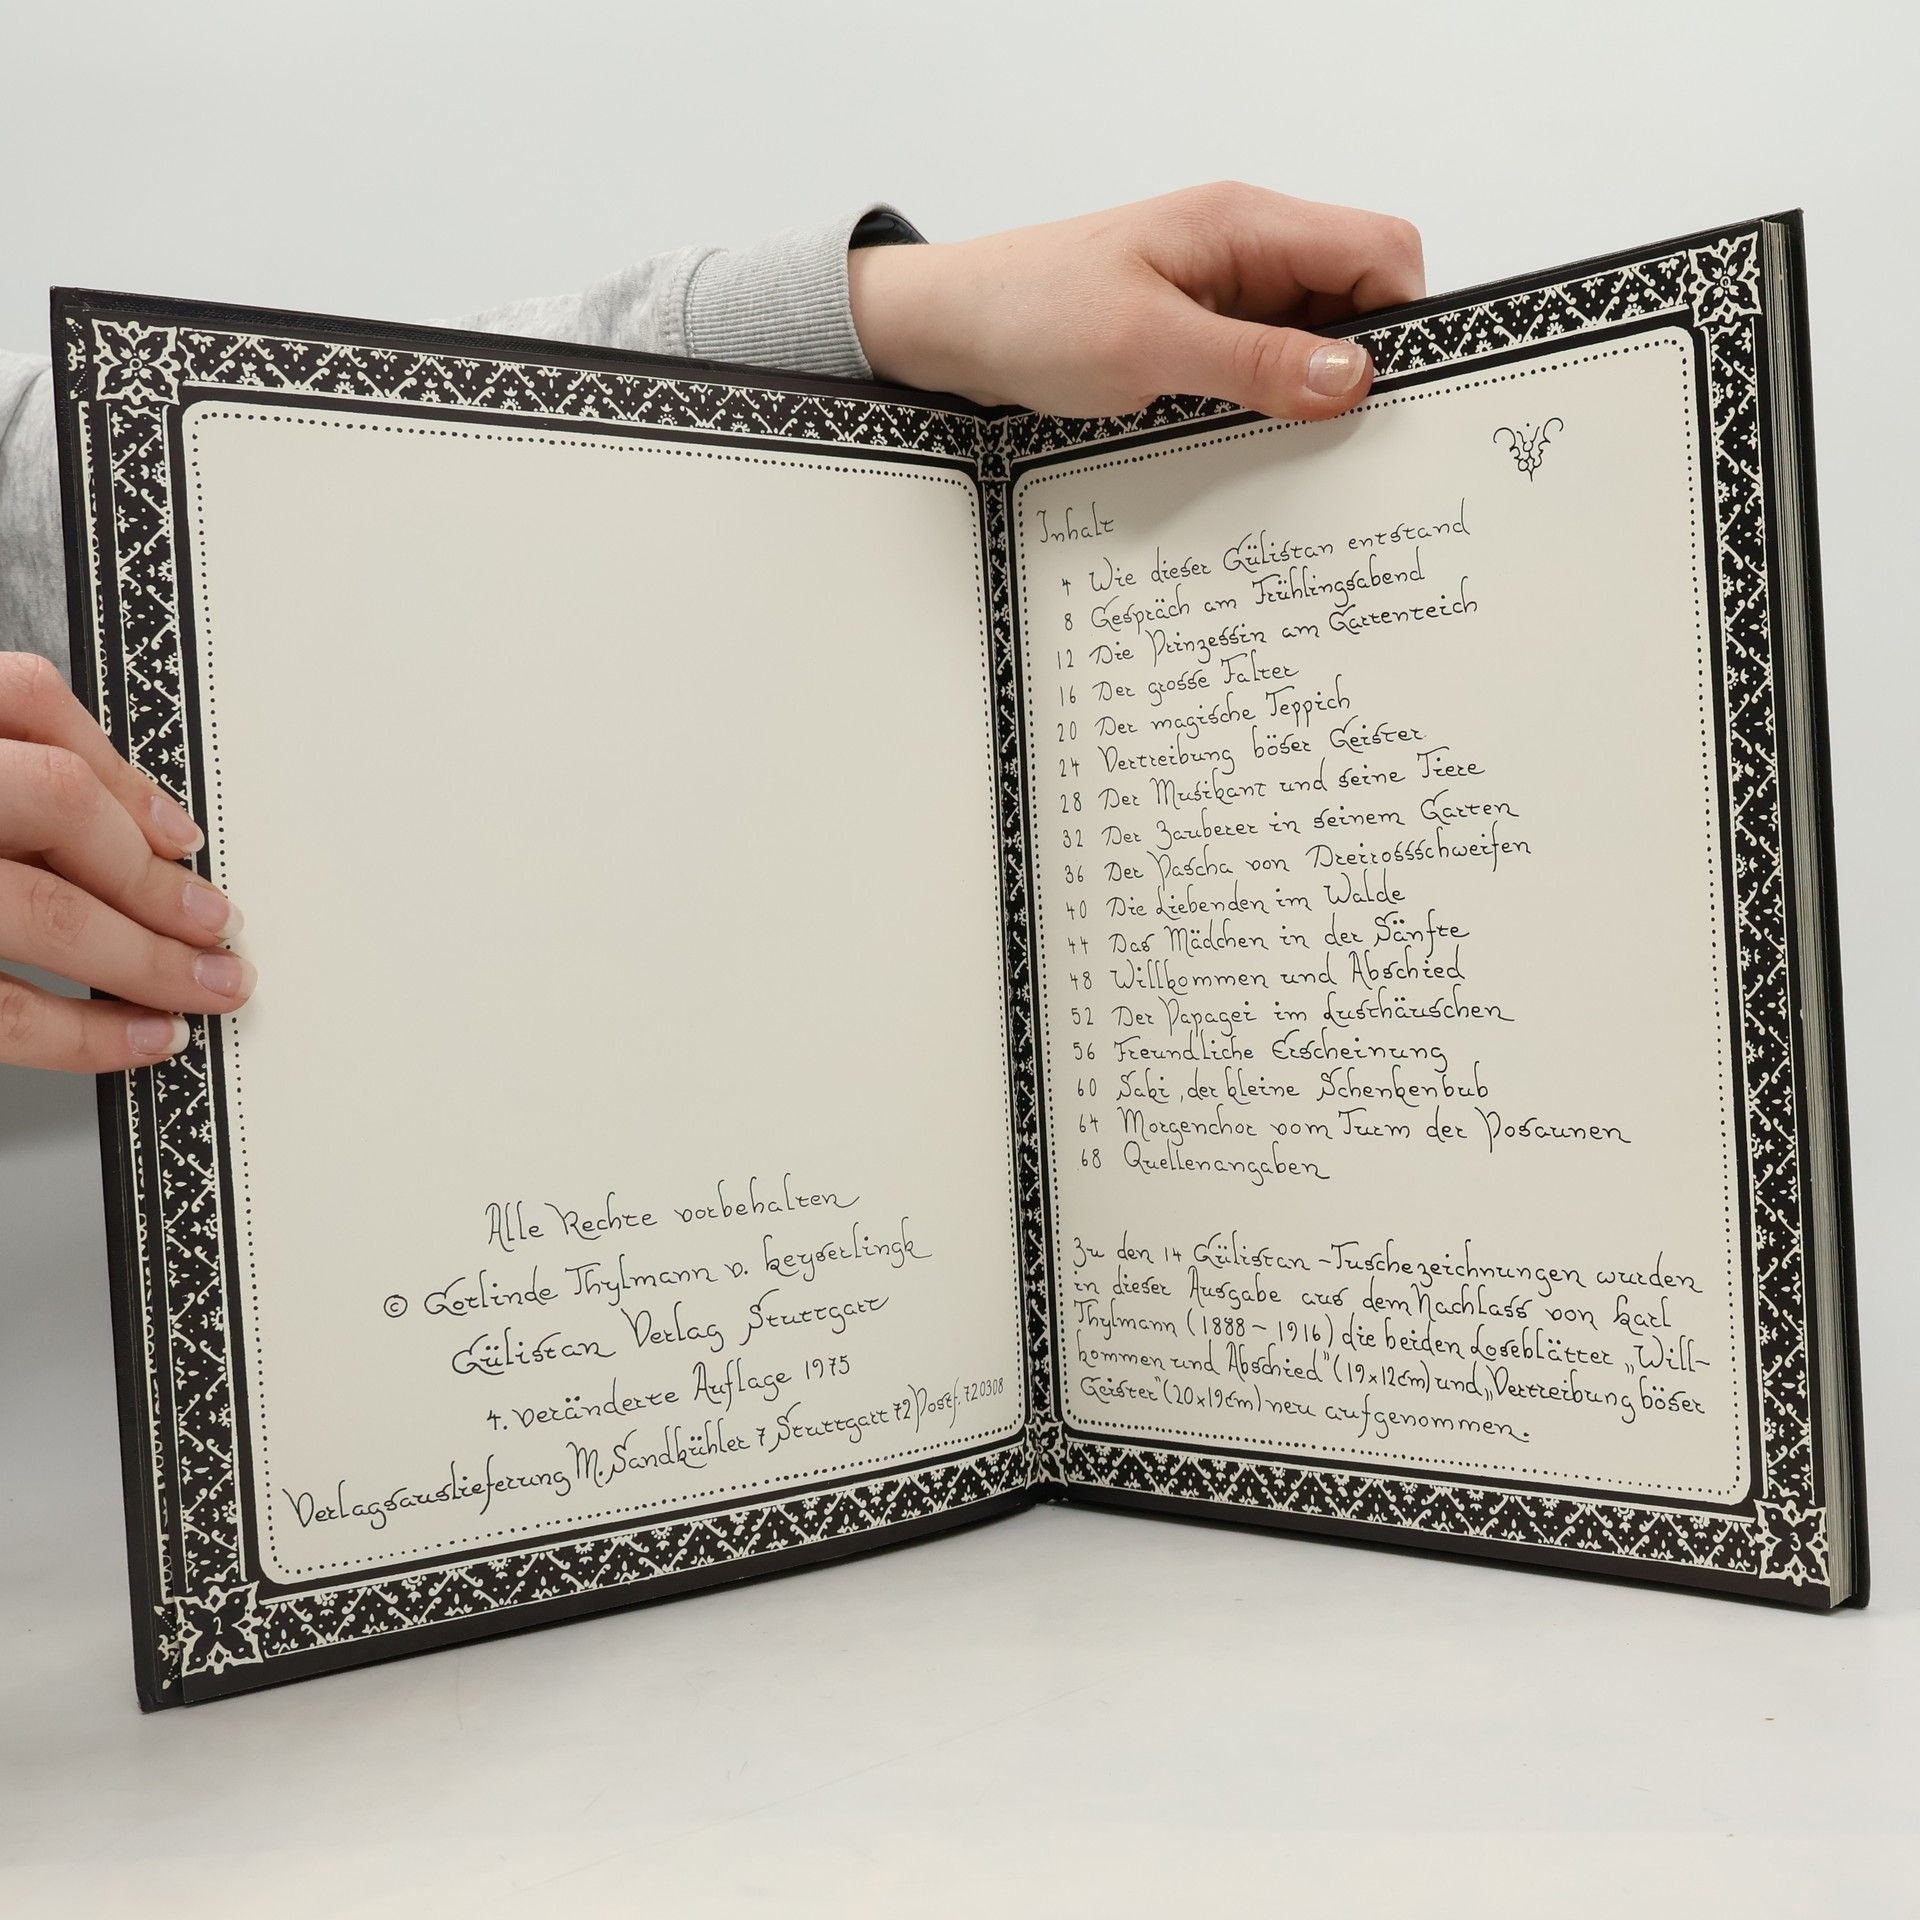 Alle Rechte vorbehalten
© Gorlinde Thylmann v. Keyserlingk
Gülistan Verlag Stuttgart
4. veränderte Auflage 1975
Verlagsauslieferung M. Sandkühler 7 Stuttgart 72 Postf. 720308
2
Inhalt
4 Wie dieser Gülistan entstand
8 Gespräch am Frühlingsabend
12 Die Prinzessin am Gartenteich
16 Der grosse Falter
20 Der magische Teppich
24 Vertreibung böser Geister
28 Der Musikant und seine Tiere
32 Der Zauberer in seinem Garten
36 Der Pascha von Dreirossschweifen
40 Die Liebenden im Walde
44 Das Mädchen in der Sänfte
48 Willkommen und Abschied
52 Der Papagei im Lusthäuschen
56 Freundliche Erscheinung
60 Saki, der kleine Schenkenbub
64 Morgenchor vom Turm der Posaunen
68 Quellenangaben
Zu den 14 Gülistan-Tuschezeichnungen wurden
in dieser Ausgabe aus dem Nachlass von Karl
Thylmann (1888 - 1916) die beiden Loseblätter „Will-
kommen und Abschied" (19x12cm) und „Vertreibung böser
Geister" (20x19cm) neu aufgenommen.
3